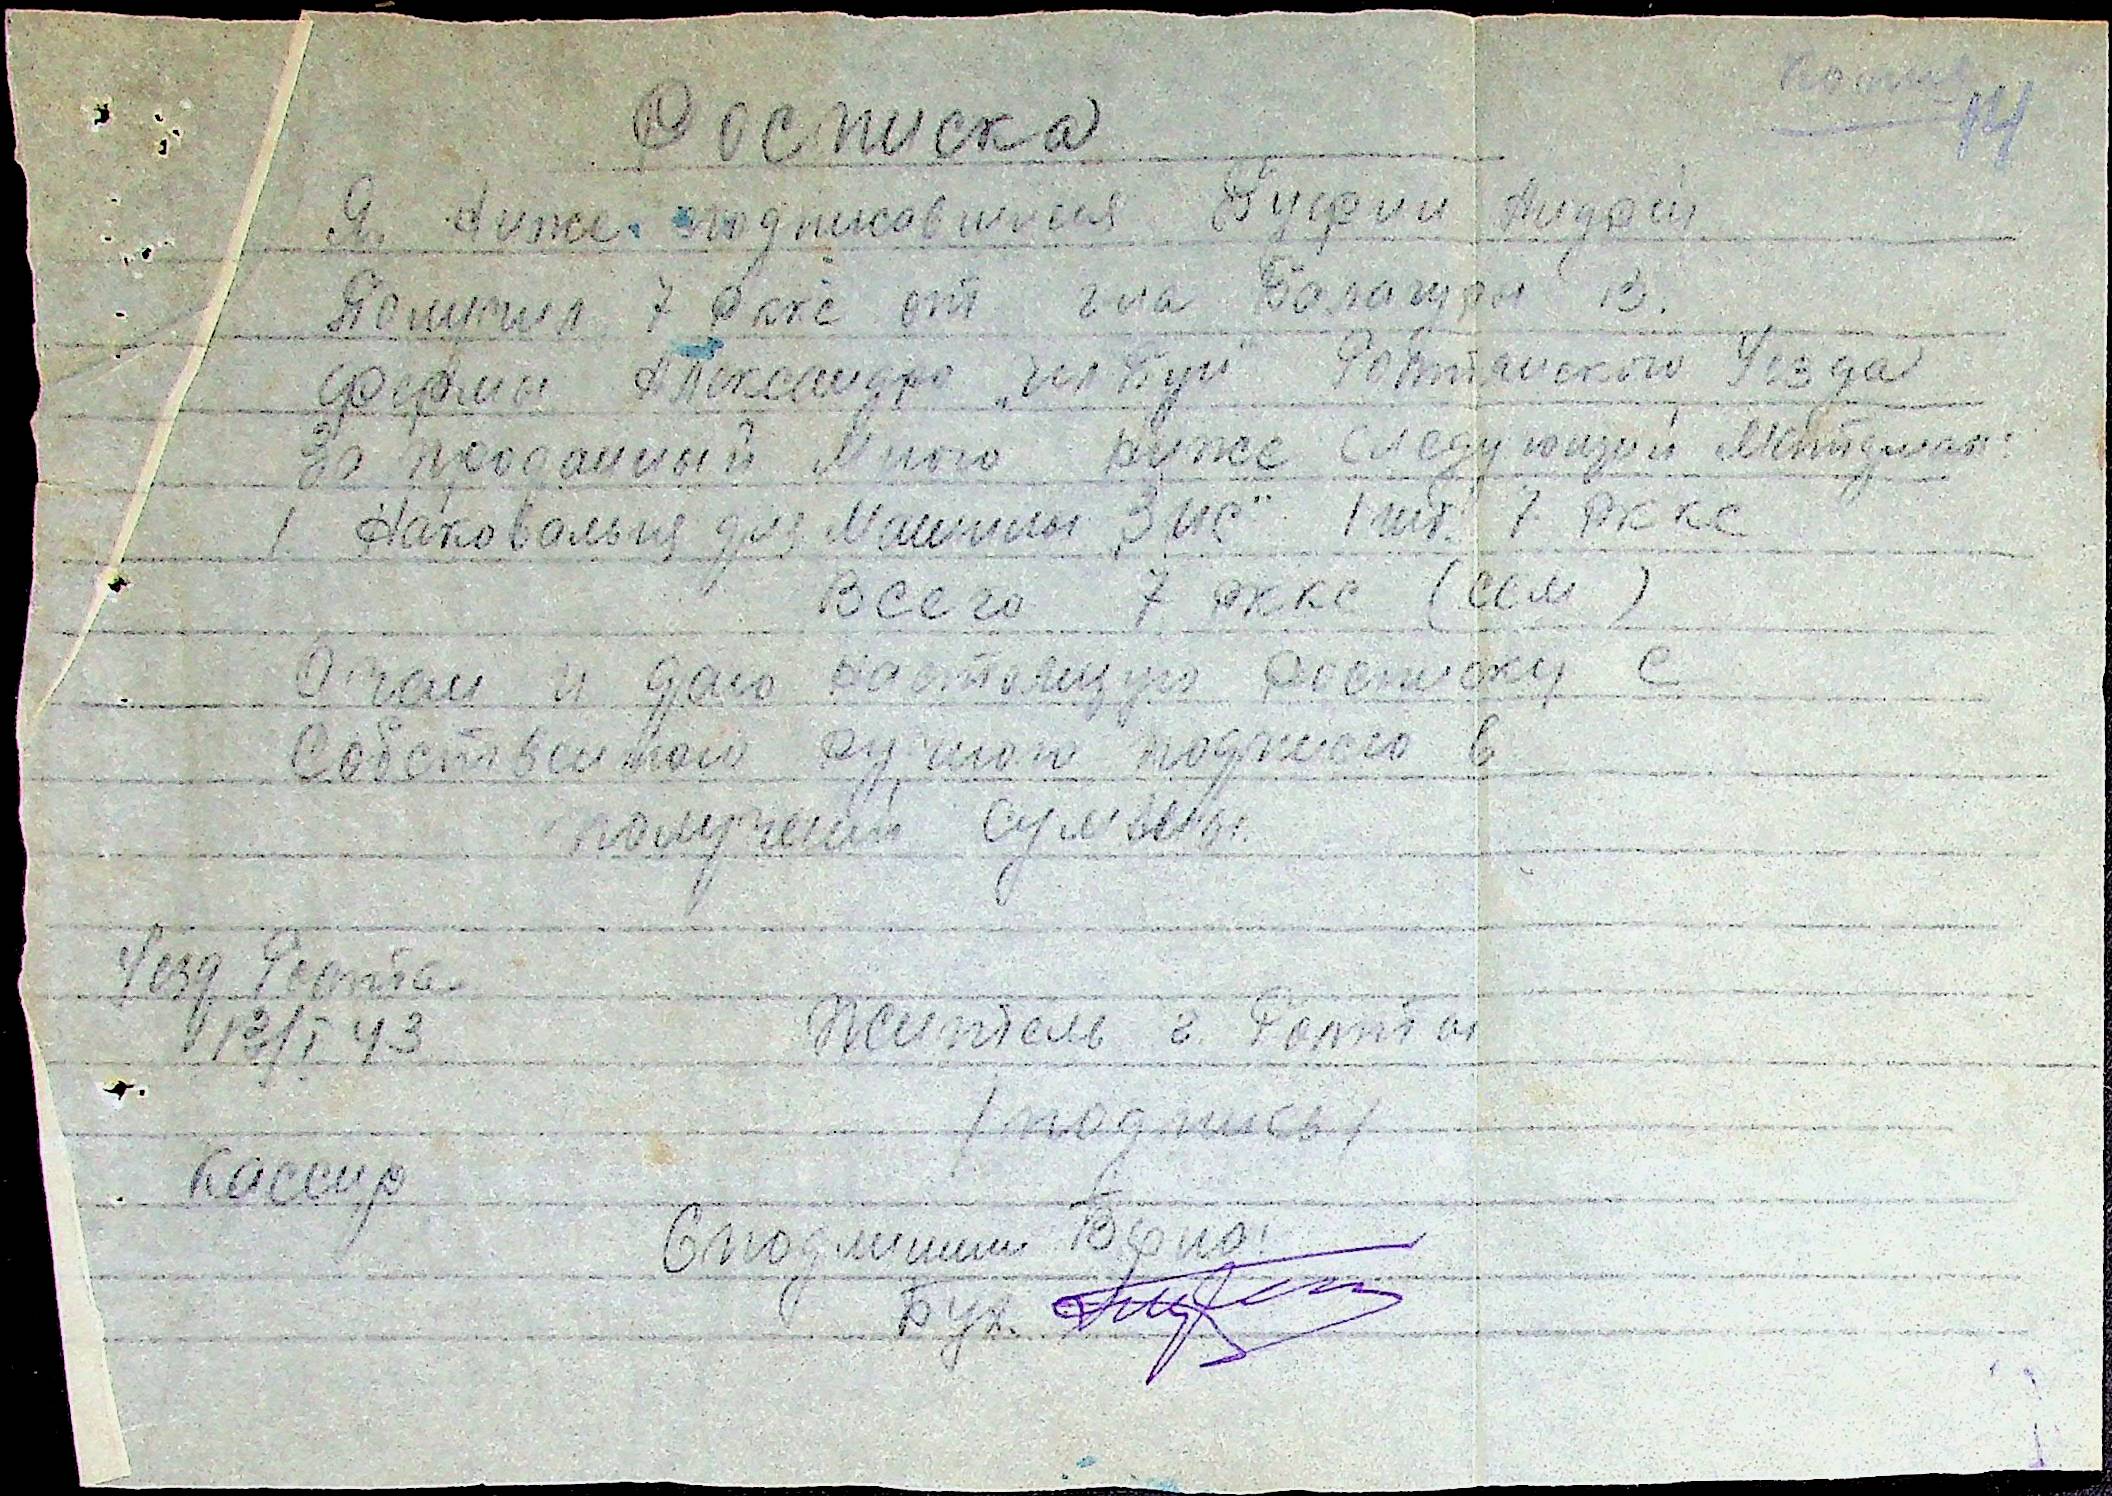 Копия
14
Росписка
Я, ниже подписавшися Андрей
Получил 7 рккс от г-на Балатуры В.
фермы Александро "Голтянского Уезда
За проданный мною ниже следующий Материал:
1. Наковальня для Машины „Зис" 1 шт. 7 рккс
Всего 7 рккс (сем)
О чем и даю настоящую росписку с
Собственной ручной подписю в
получений суммы.
Уезд Голта
13/I 43
Житель г. Голты
/подпись/
Кассир
С подлиним Верно:
Бух.